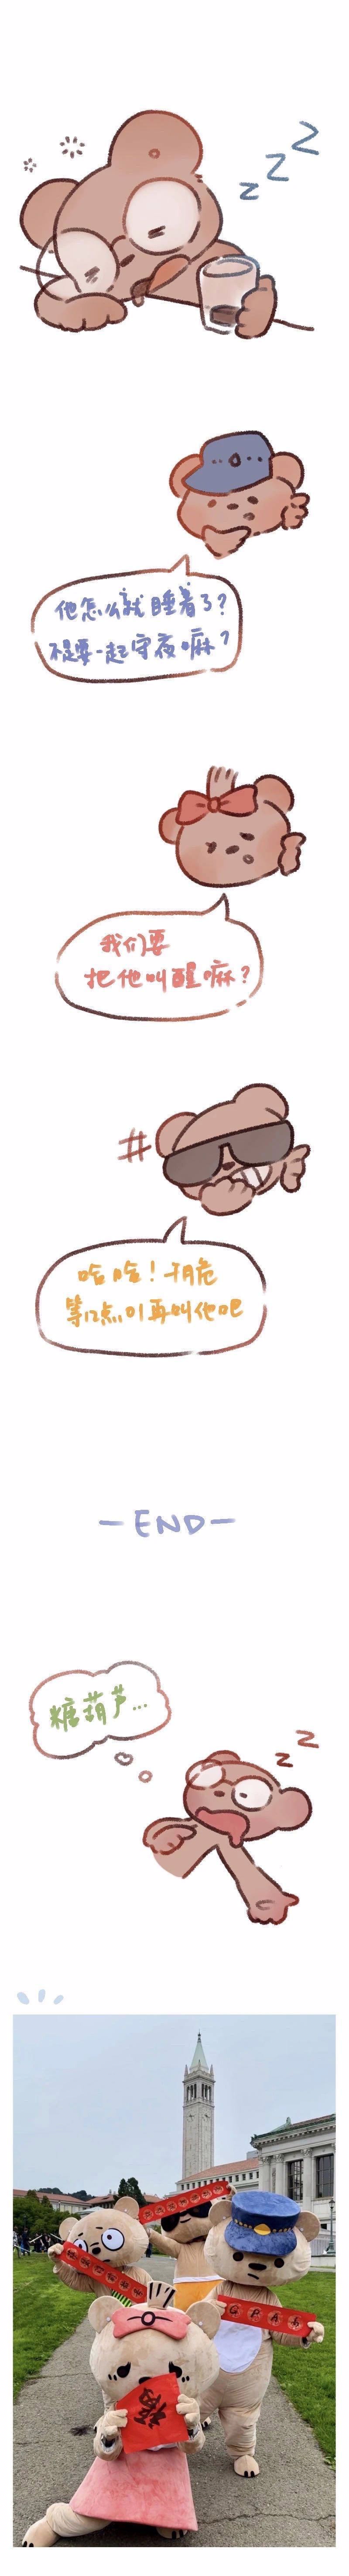 z z z
他怎么就睡着了?
不是要一起守夜嘛?
我们要
把他叫醒嘛?
哈哈!干脆
等12点01再叫他吧
-END-
糖葫芦...
z z
福